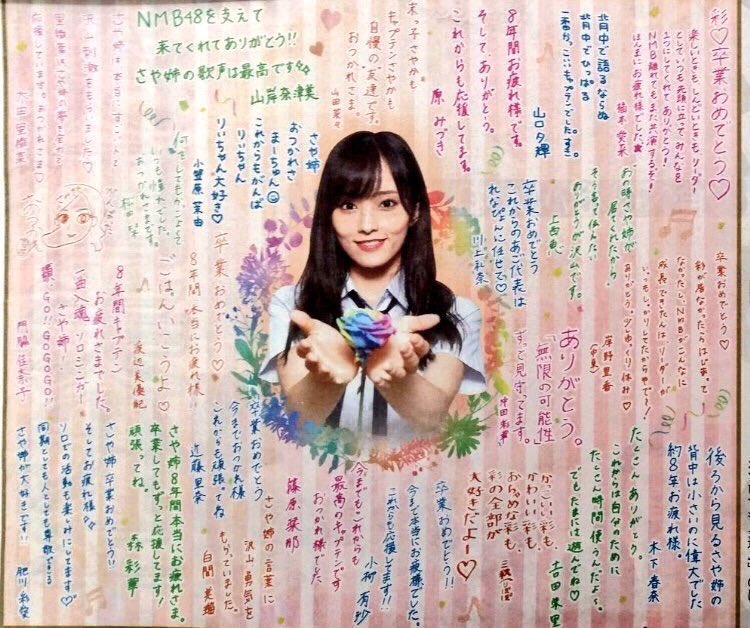 彩♡卒業おめでとう♡
楽しいときも しんどいときも リーダー
として いつも 先頭に立って みんなを
1つにしてくれて ありがとう!
NMB離れても また共演するぞ!
ほんまに お疲れ様でした。
背中で語るならぬ
背中でひっぱる
一番かっこいいキャプテンでした。
山口夕輝
8年間お疲れ様です。
そして、ありがとう。
これからも応援してます。
原 みづき
さや姉かも
キャプテンさやかも
自慢の友達です。
おつかれさま。
山田菜々
NMB48を支えて
来てくれてありがとう!!
さや姉の歌声は最高です
山岸奈津美
さや姉は本当にすごい
沢山刺激をもらいました♡
応援しています。おつかれさま♡
あの時さや姉が
居てくれたから。
そう言って伝えたい
ありがとうが沢山です。
上西 恵
卒業おめでとう
これからのあご代表は
れなぴょんに任せて♡
川上礼奈
さや姉
おつかれさ
まーちゅん
これからもがんば
りぃちゃん
りぃちゃん大好き♡
小笠原茉由
何をしてもかっこよくて
いつも憧れでした。
おつかれさまです。
卒業おめでとう♡
彩が居なかったらはじまって
なかったし、NMBがこんなに
成長できたんはリーダーが
いっつもしっかりしてたからやで!
ありがとう。少しゆっくり休み♡
岸野里香
ありがとう。
「無限の可能性」
ずっと見守ってます。
沖田彩華
卒業おめでとう♡
8年間本当にお疲れ様!!
ごはんいこうよ♡
渡辺美優紀
8年間キャプテン
お疲れさまでした。
一曲入魂 ソロシンガー
さや姉!
GO!! GOGOGO!!
門脇佳奈子
後ろから見るさや姉の
背中は小さいのに偉大でした
約8年お疲れ様。
木下春奈
たくさんありがとう。
これからは自分のために
たくさん時間使うんだよ〜。
でもたまには遊んでね♡
吉田朱里
かっこいい彩も、
かわいい彩も、
おちゃめな彩も、
彩の全部が
大好きだよー♡
卒業おめでとう!!
今まで本当にお疲れ様でした。
これからも応援してます!!
小柳有沙
今までもこれからも
最高のキャプテンです
おつかれ様でした
篠原栞那
さや姉の言葉に
沢山勇気を
もらっていました。
白間美瑠
卒業おめでとう
今までおつかれ様
これからも頑張ってね
近藤里奈
さや姉8年間本当にお疲れさま。
卒業してもずっと応援してます!
頑張ってね。
森 彩華
さや姉 卒業おめでとう!!
そしてお疲れ様
ソロでの活動も楽しみにしてます♡
同期としても人としても尊敬できる
さや姉が大好きです!!
肥川彩愛